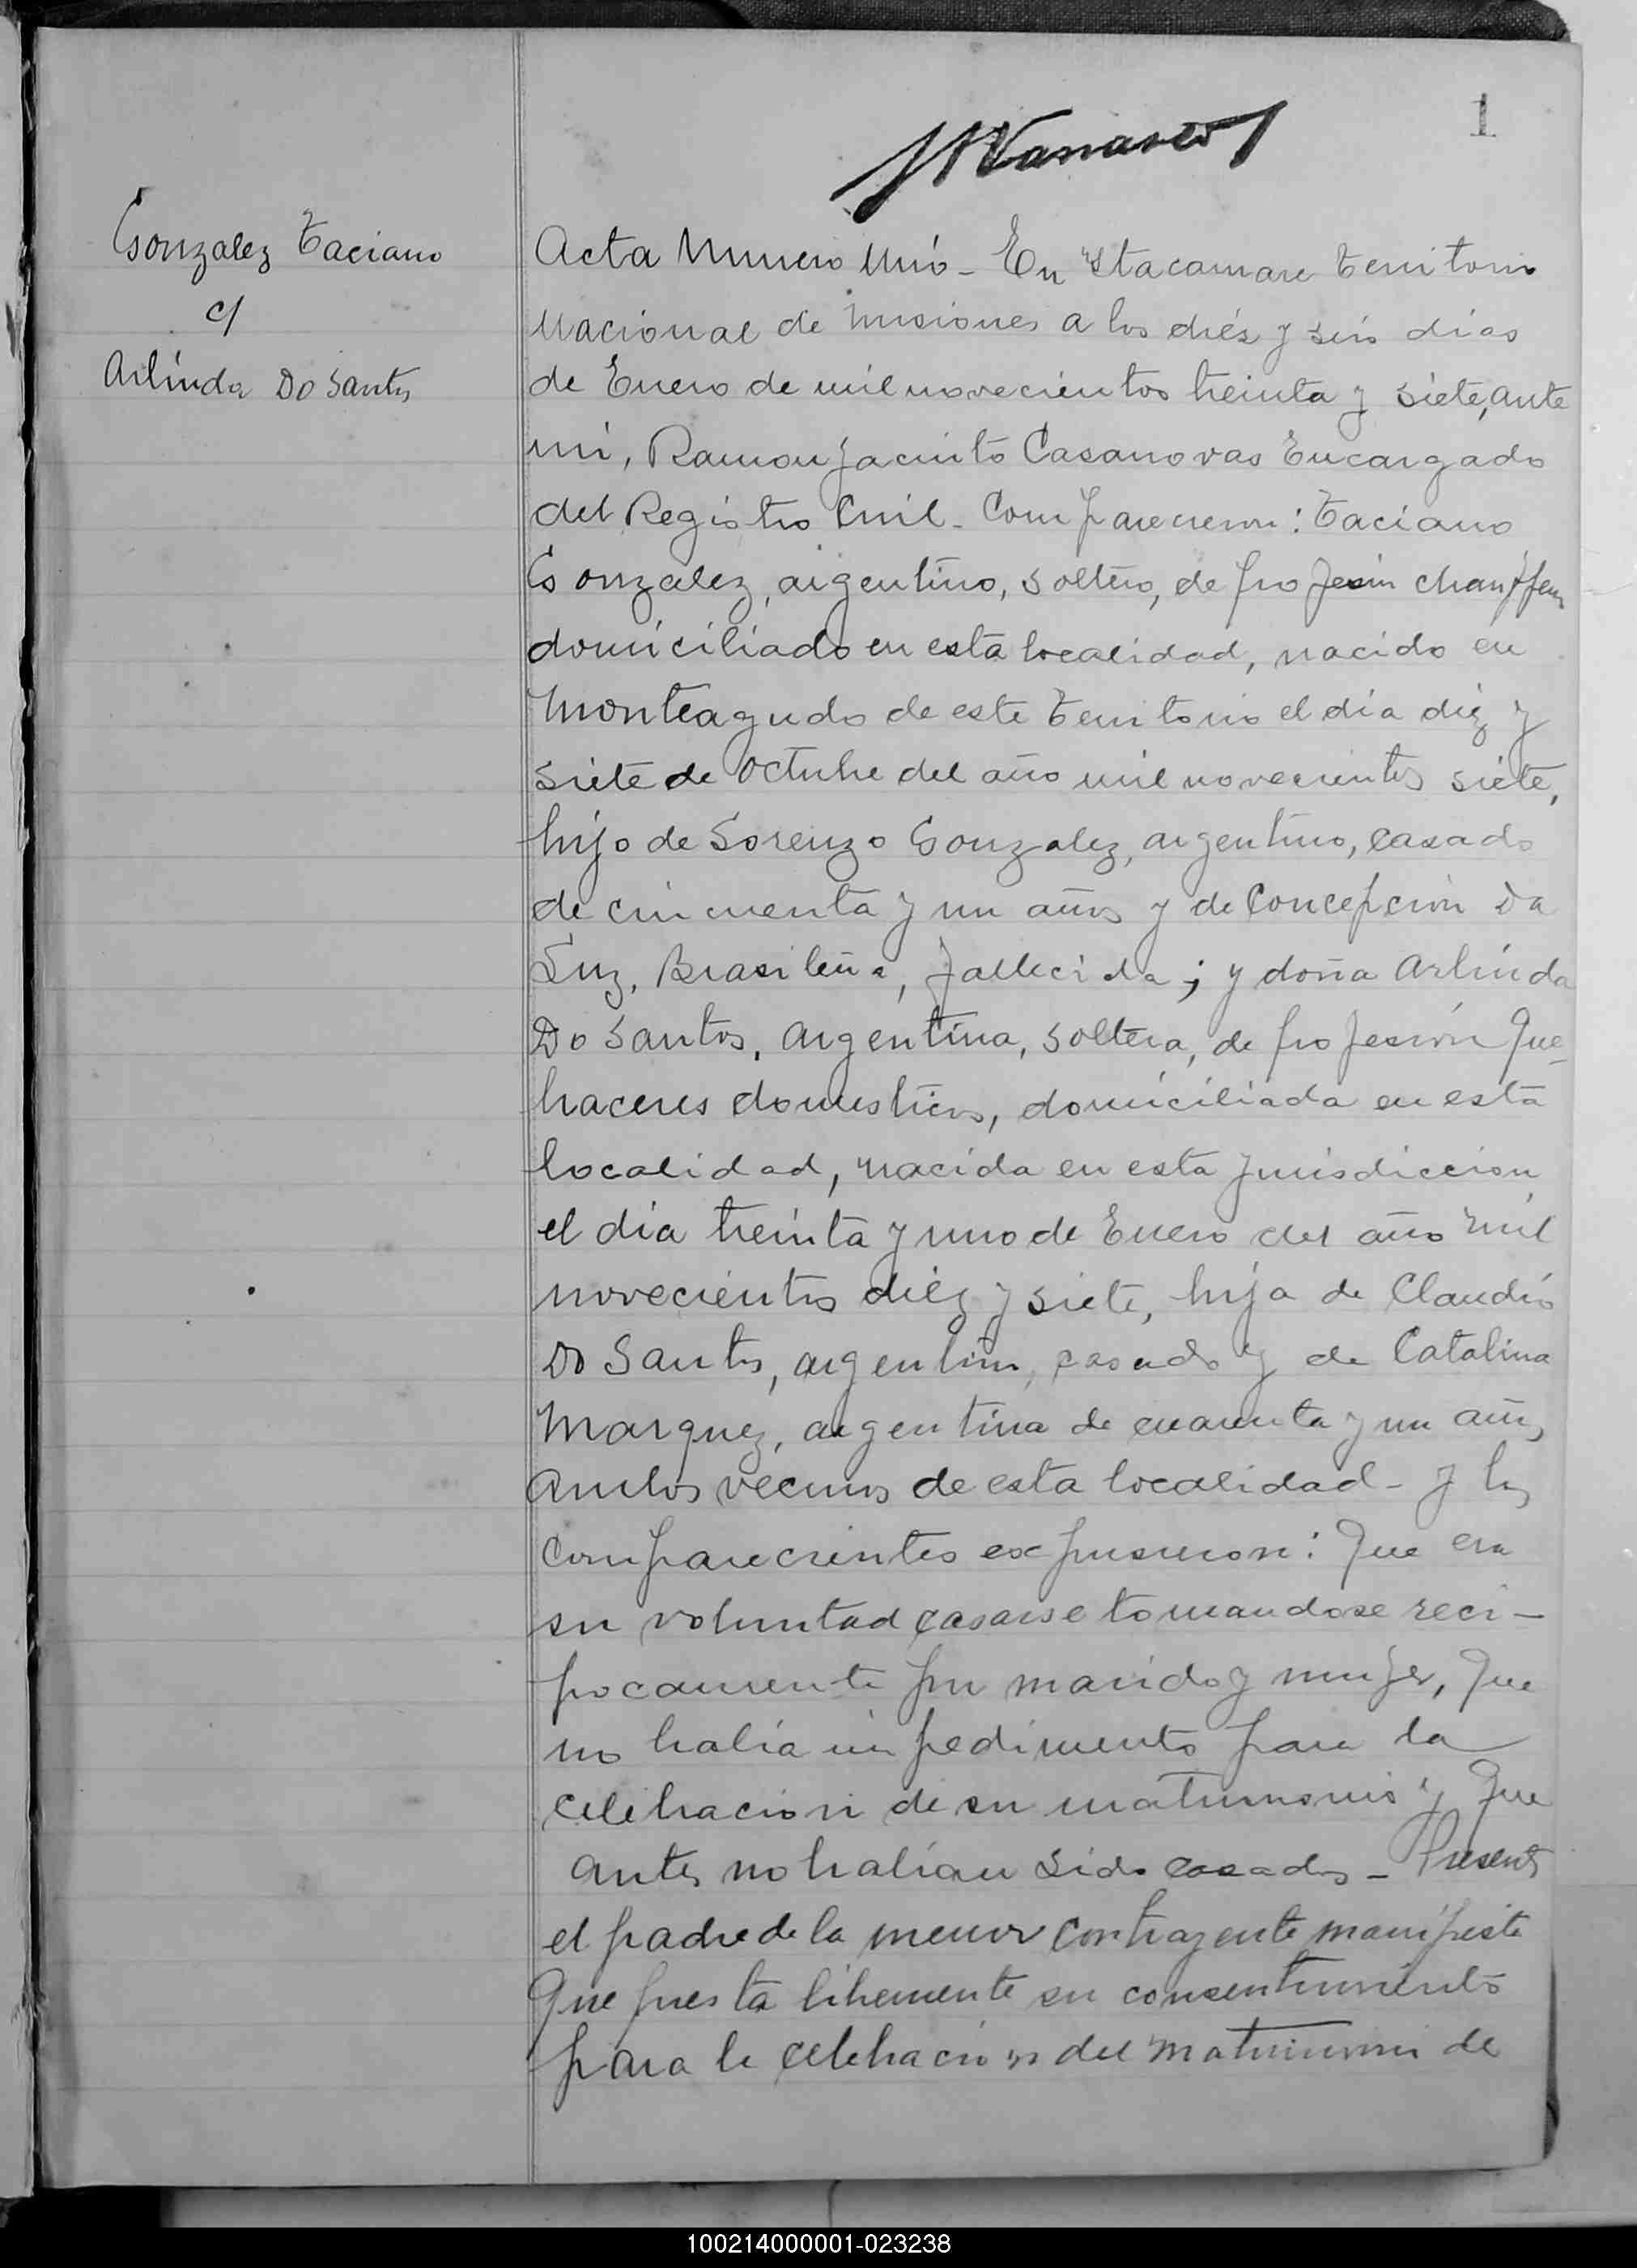 1
Gonzalez Taciano
c/
Arlinda Do Santos
Acta Numero Uno - En Itacaruare Territorio
Nacional de Misiones a los diés y seis dias
de Enero de mil novecientos treinta y siete, ante
mi, Ramon Jacinto Casanovas Encargado
del Registro Civil - Comparecieron: Taciano
Gonzalez, argentino, soltero, de profesion chauffeur
domiciliado en esta localidad, nacido en
Monteagudo de este Territorio el dia diez y
siete de Octubre del año mil novecientos siete,
hijo de Lorenzo Gonzalez, argentino, casado
de cincuenta y un años y de Concepción Da
Luz, Brasileña, fallecida; y doña Arlinda
Do Santos, Argentina, soltera, de profesión Que-
haceres domesticos, domiciliada en esta
localidad, nacida en esta jurisdiccion
el dia treinta y uno de Enero del año mil
novecientos diez y siete, hija de Claudio
Do Santos, argentino, casado y de Catalina
Marquez, argentina de cuarenta y un años,
ambos vecinos de esta localidad - y los
comparecientes expusieron: Que era
su voluntad casarse tomandose reci-
procamente por marido y mujer, que
no habia impedimento para la
celebracion de su matrimonio y que
antes no habian sido casados - Presente
el padre de la menor contrayente manifiesta
Que presta libremente su consentimiento
para la celebracion del matrimonio de
100214000001-023238